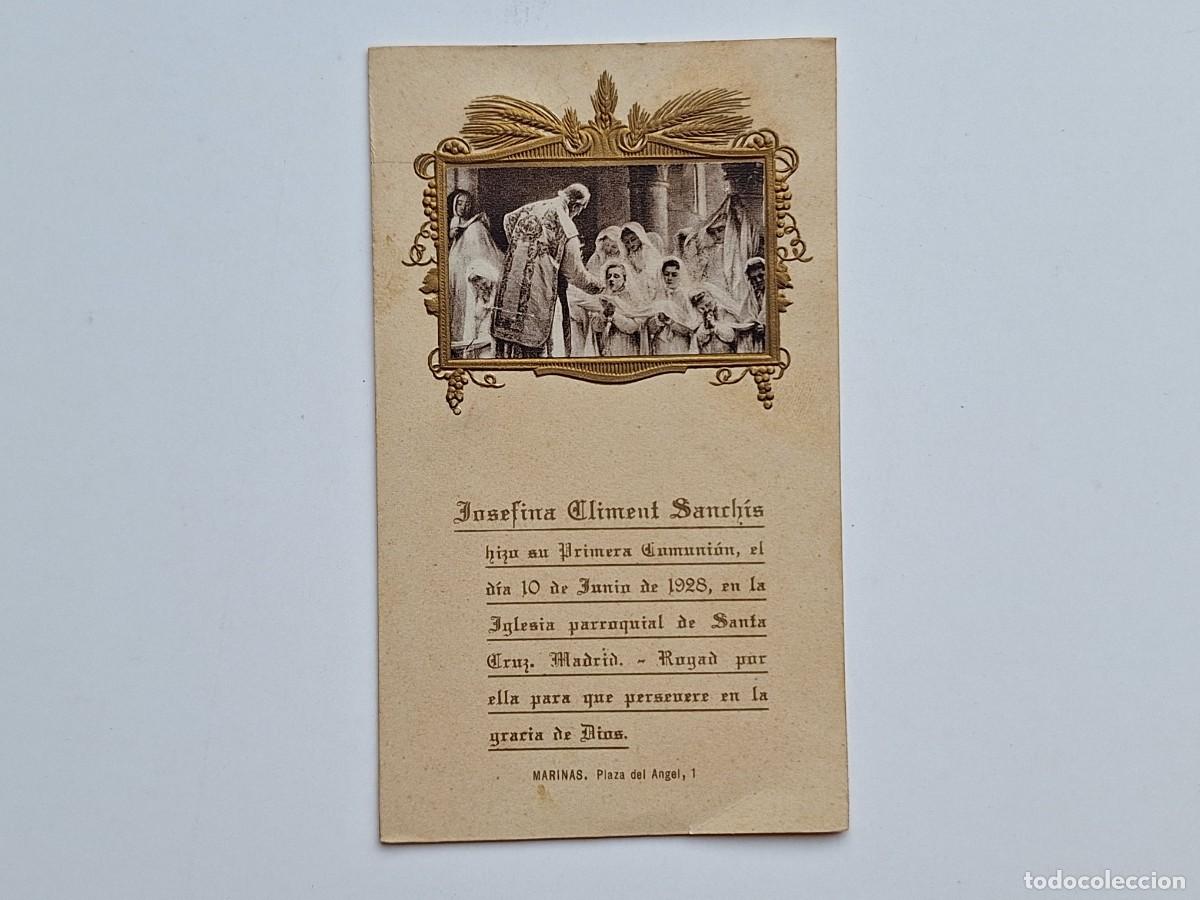 Josefina Climent Sanchís
hizo su Primera Comunión, el
día 10 de Junio de 1928, en la
Iglesia parroquial de Santa
Cruz. Madrid. - Rogad por
ella para que persevere en la
gracia de Dios.
MARINAS. Plaza del Angel, 1
todocoleccion